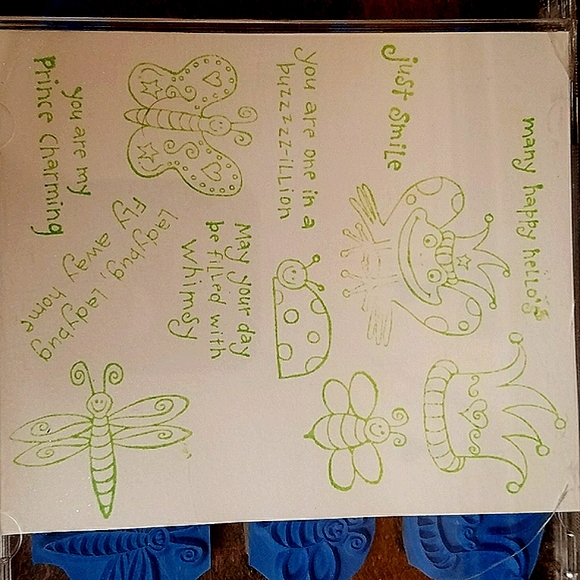 many happy hello's
Just Smile
you are one in a
buzzzzz-illion
May your day
be filled with
Whimsy
you are my
Prince Charming
Ladybug, Ladybug
Fly away home